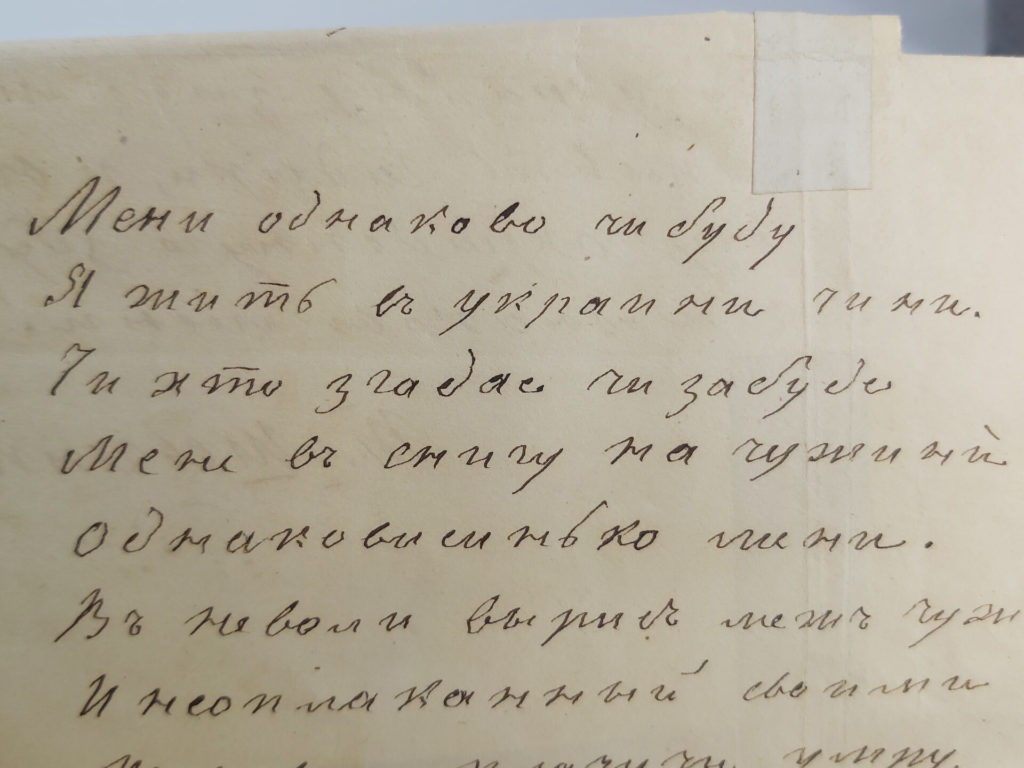 Мени однаково чи буду
Я жить въ украини чи ни.
Чи хто згадае чи забуде
Мене въ снигу на чужини
Однаковисинько мени.
Въ неволи вырисъ межъ чуж
И неоплаканный своими
плачучи умру